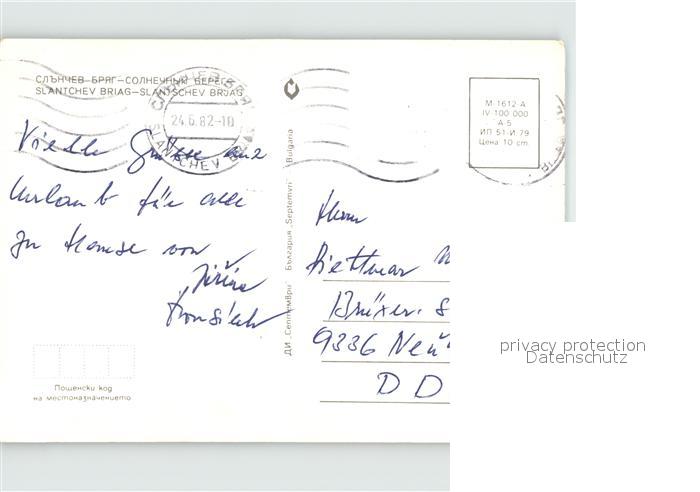 СЛЪНЧЕВ БРЯГ–СОЛНЕЧНЫЙ БЕРЕГ
SLANTCHEV BRIAG–SLANTSCHEV BRJAG
24.6.82-10
SLANTCHEV
M 1612 A
IV 100 000
A 5
ИП 51-И 79
Цена 10 ст.
Vielle Grüsse aus
Urlaub für alle
zu Hause von
Jiřina
ДИ „Септември" България „Septemvri" Bulgaria
Herrn
Diettmar
Brüxer. S
9336 Neu
D D
Пощенски код
на местоназначението
privacy protection
Datenschutz